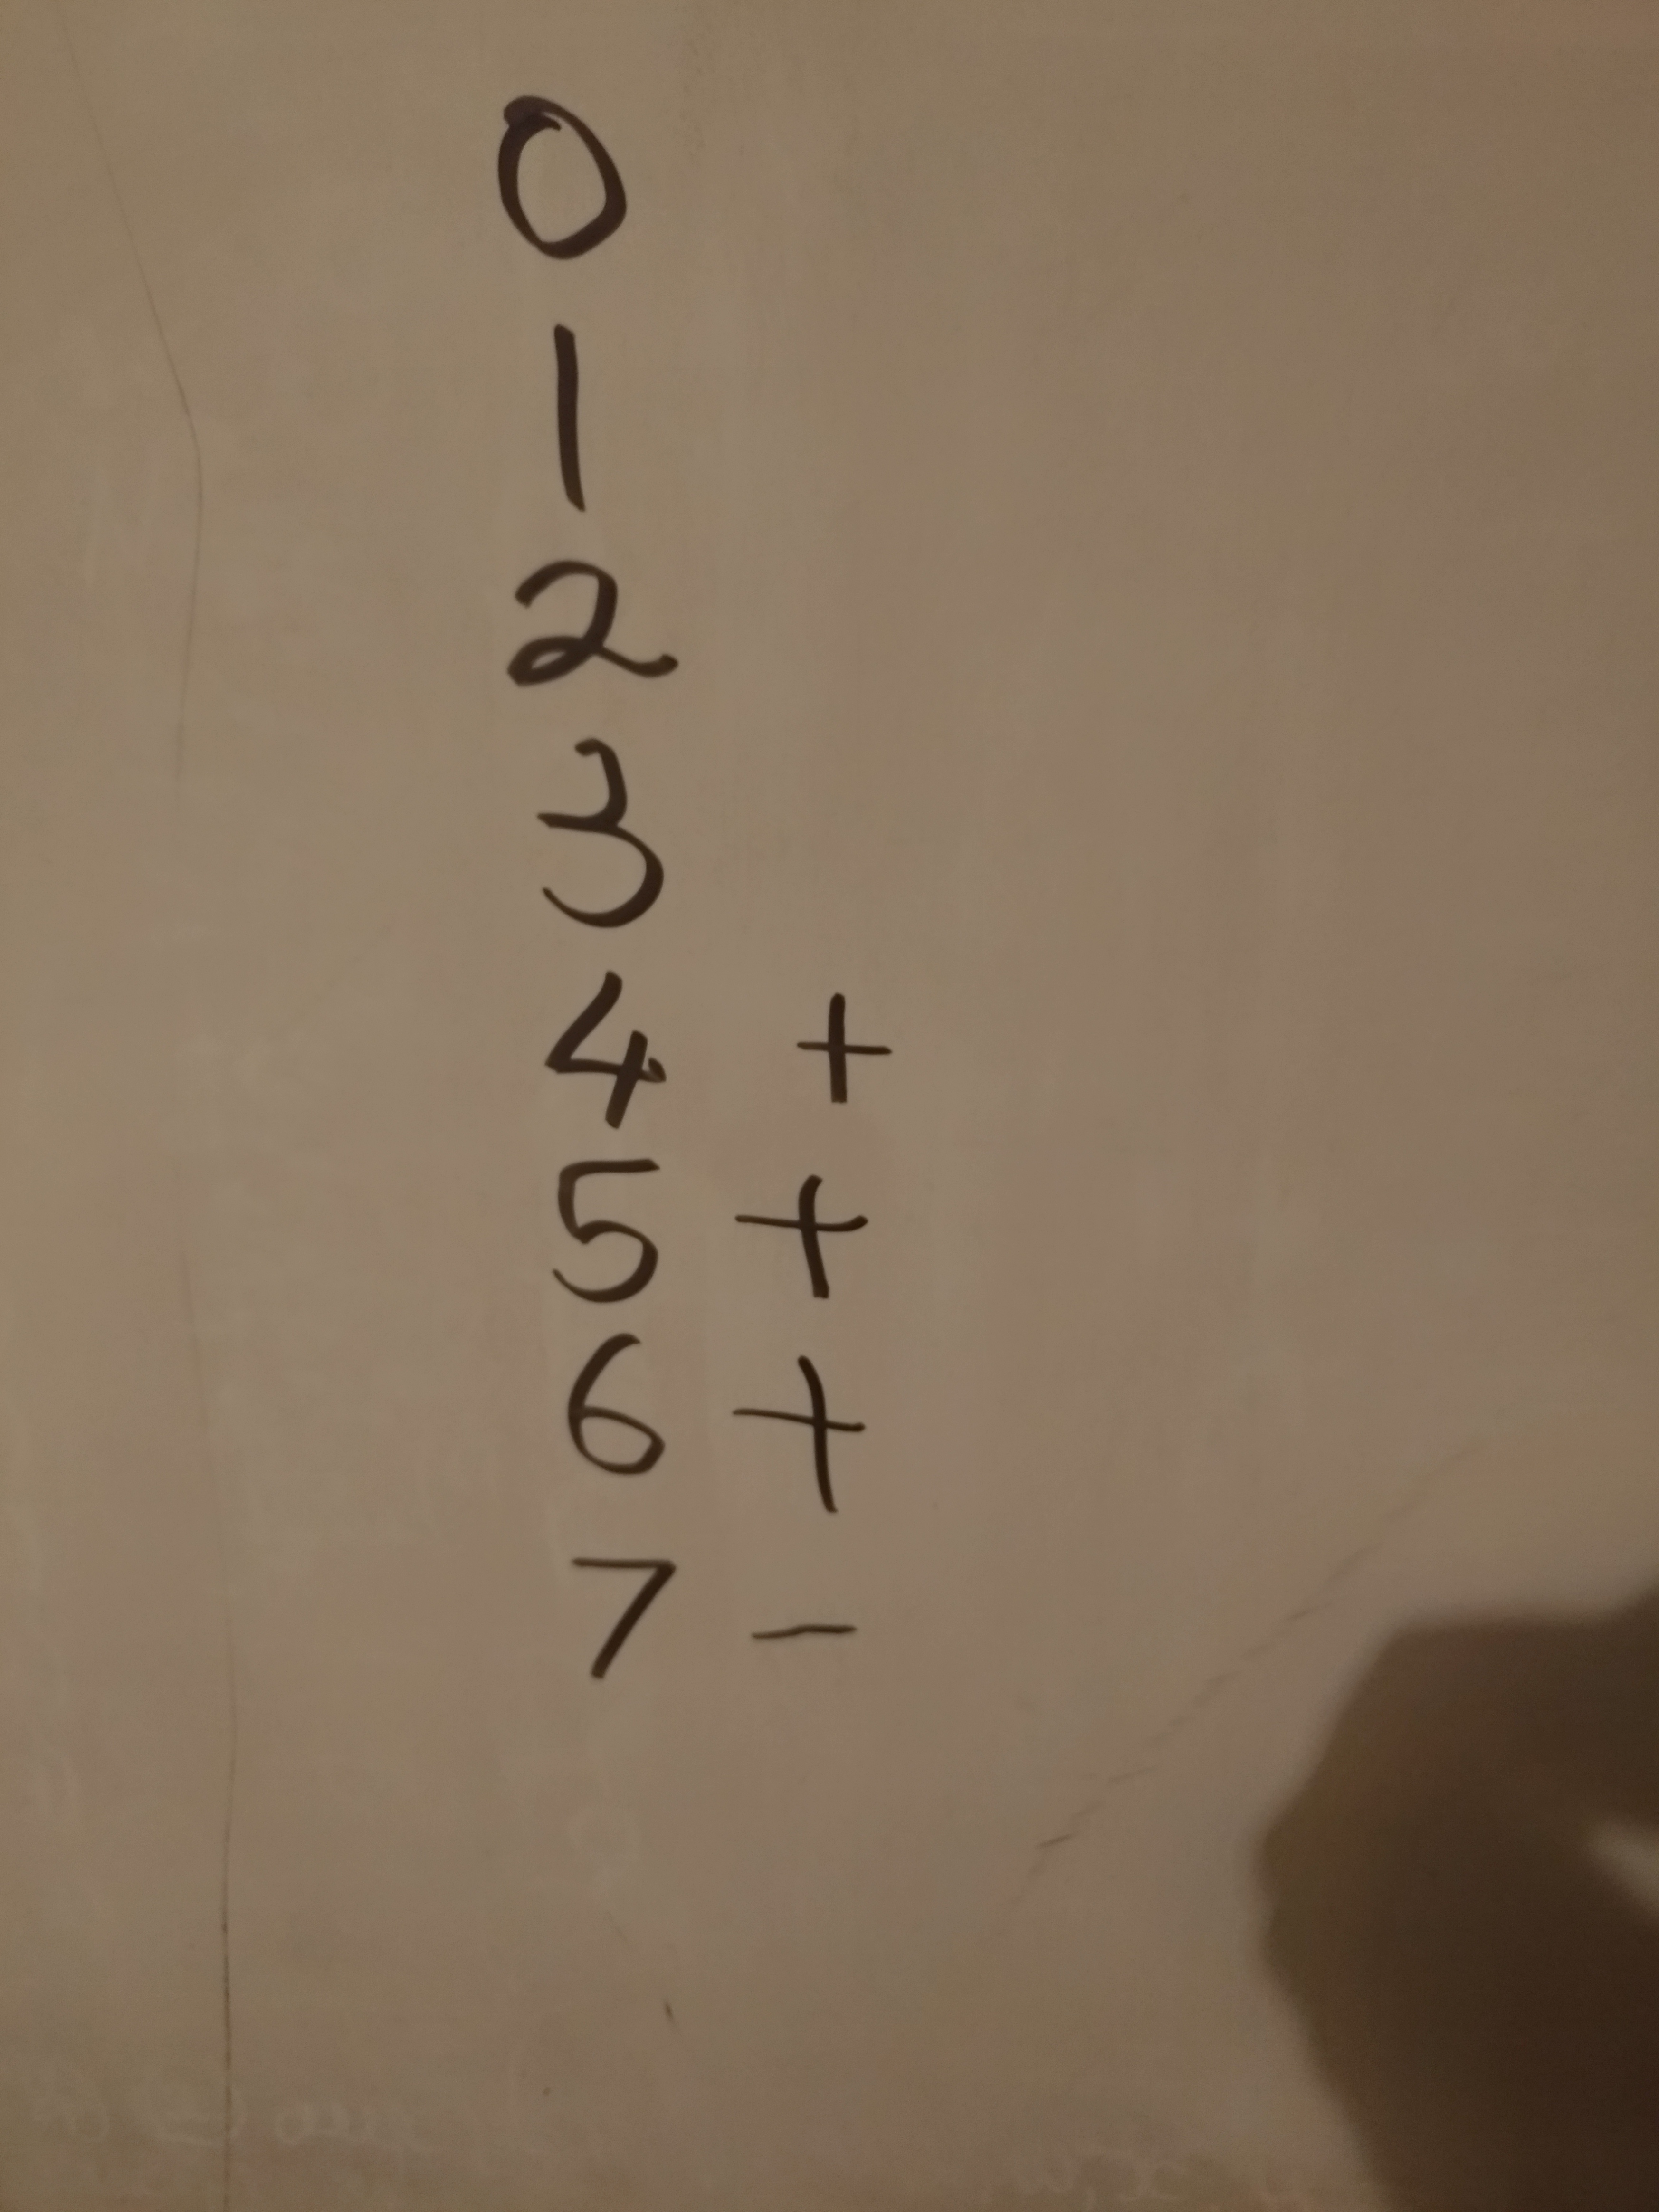 0
1
2
3
4 +
5 +
6 +
7 -